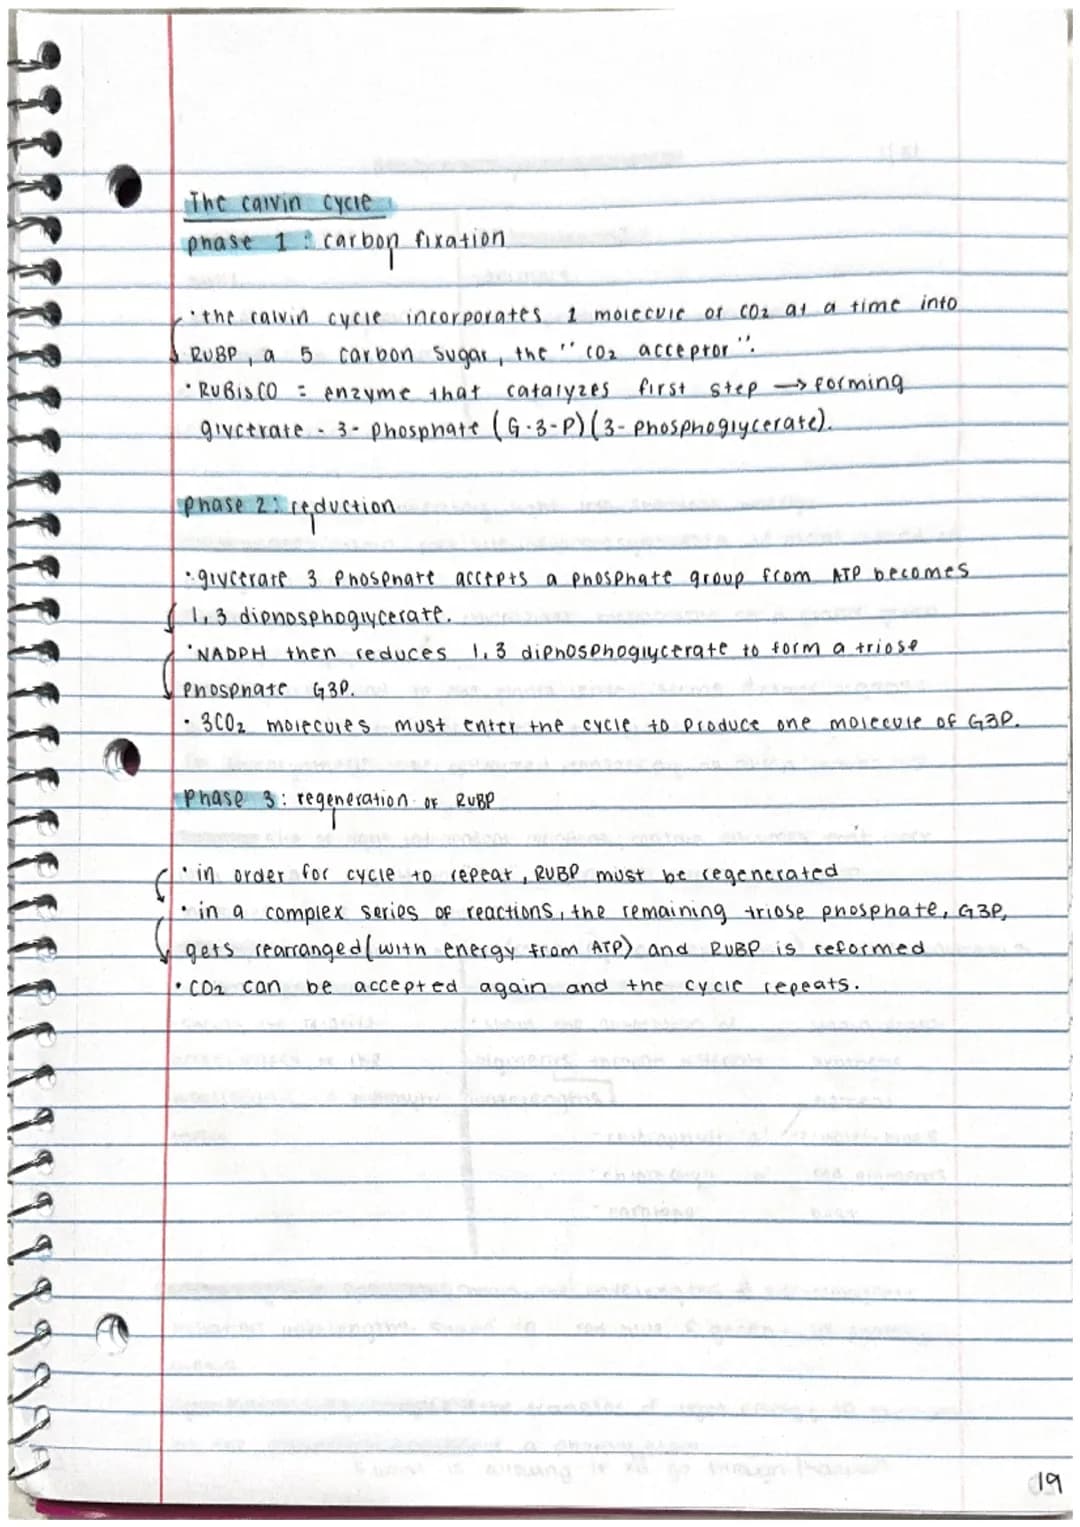 The calvin cycle
phase 1 : carbon fixation
• the calvin cycle incorporates 1 molecule of CO2 at a time into
RUBP, a 5 carbon sugar, the " CO2 acceptor".
• RUBisCO = enzyme that catalyzes first step → forming
glycerate - 3 - phosphate (G-3-P) (3- phosphoglycerate).
phase 2: reduction
• glycerate 3 phosphate accepts a phosphate group from ATP becomes
1,3 diphosphoglycerate.
• NADPH then reduces 1,3 diphosphoglycerate to form a triose
phosphate G3P.
• 3CO2 molecules must enter the cycle to produce one molecule of G3P.
Phase 3: regeneration of RUBP
• in order for cycle to repeat, RUBP must be regenerated
• in a complex series of reactions, the remaining triose phosphate, G3P,
gets rearranged (with energy from ATP) and RUBP is reformed
• CO2 can be accepted again and the cycle repeats.
19